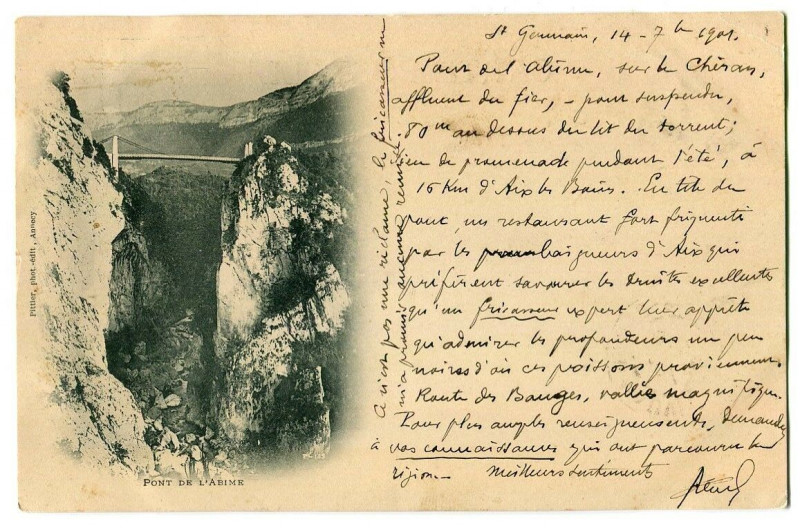 St Germain, 14 - 7bre 1901.
Pont de l'abîme, sur le Chéran,
affluent du fier, - pont suspendu,
80m au dessus du lit du torrent;
lieu de promenade pendant l'été, à
16 Km d'Aix les Bains. En tête du
pont, un restaurant fort fréquenté
par les baigneurs d'Aix qui
préfèrent savourer les truites excellentes
qu'un fricasseur expert leur apprête
qu'admirer les profondeurs un peu
noires d'où ces poissons proviennent.
Route des Bauges, vallée magnifique.
Pour plus amples renseignements, demandez
à vos connaissances qui ont parcouru la
région. Meilleurs sentiments
Ce n'est pas une réclame, le fricasseur ne
m'a promis aucune remise.
Pittier, phot.-édit, Annecy
PONT DE L'ABIME